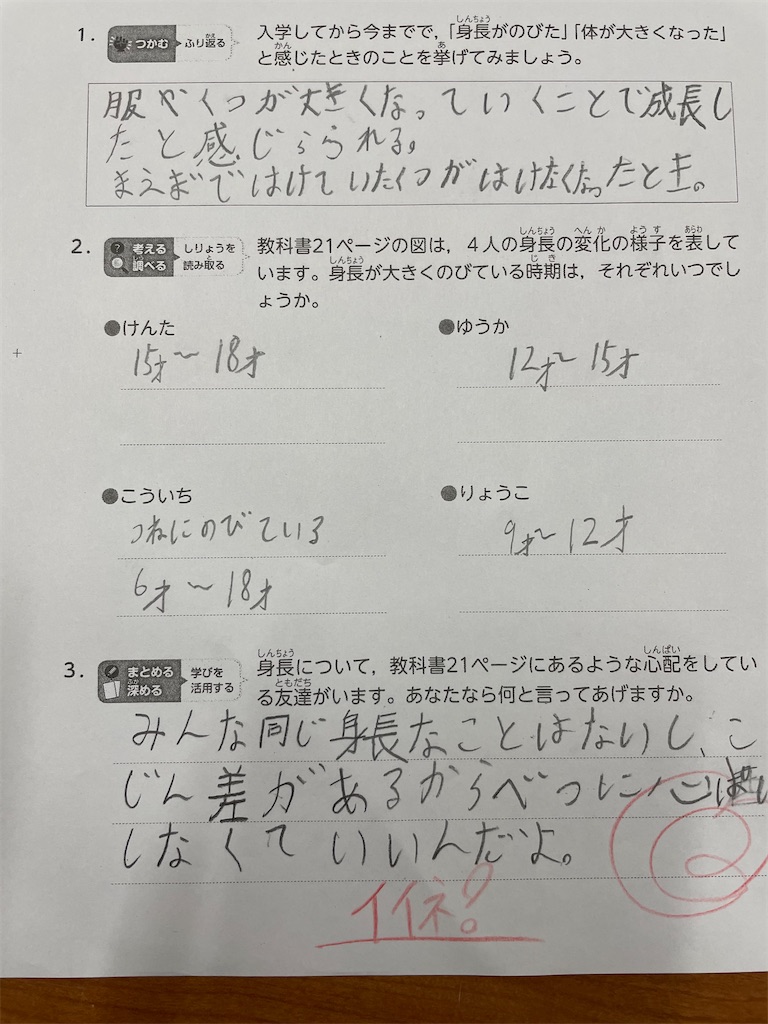 1. つかむ ふり返る 入学してから今までで，「身長がのびた」「体が大きくなった」
と感じたときのことを挙げてみましょう。
服やくつが大きくなっていくことで成長し
たと感じらられる。
まえまではけていたくつがはけなくなったとき。
2. 考える 調べる しりょうを読み取る 教科書21ページの図は，4人の身長の変化の様子を表して
います。身長が大きくのびている時期は，それぞれいつでし
ょうか。
●けんた
15才〜18才
●ゆうか
12才〜15才
●こういち
つねにのびている
6才〜18才
●りょうこ
9才〜12才
3. まとめる 深める 学びを活用する 身長について，教科書21ページにあるような心配をしてい
る友達がいます。あなたなら何と言ってあげますか。
みんな同じ身長なことはないし、こ
じん差があるからべつに心ぱい
しなくていいんだよ。
イイネ!